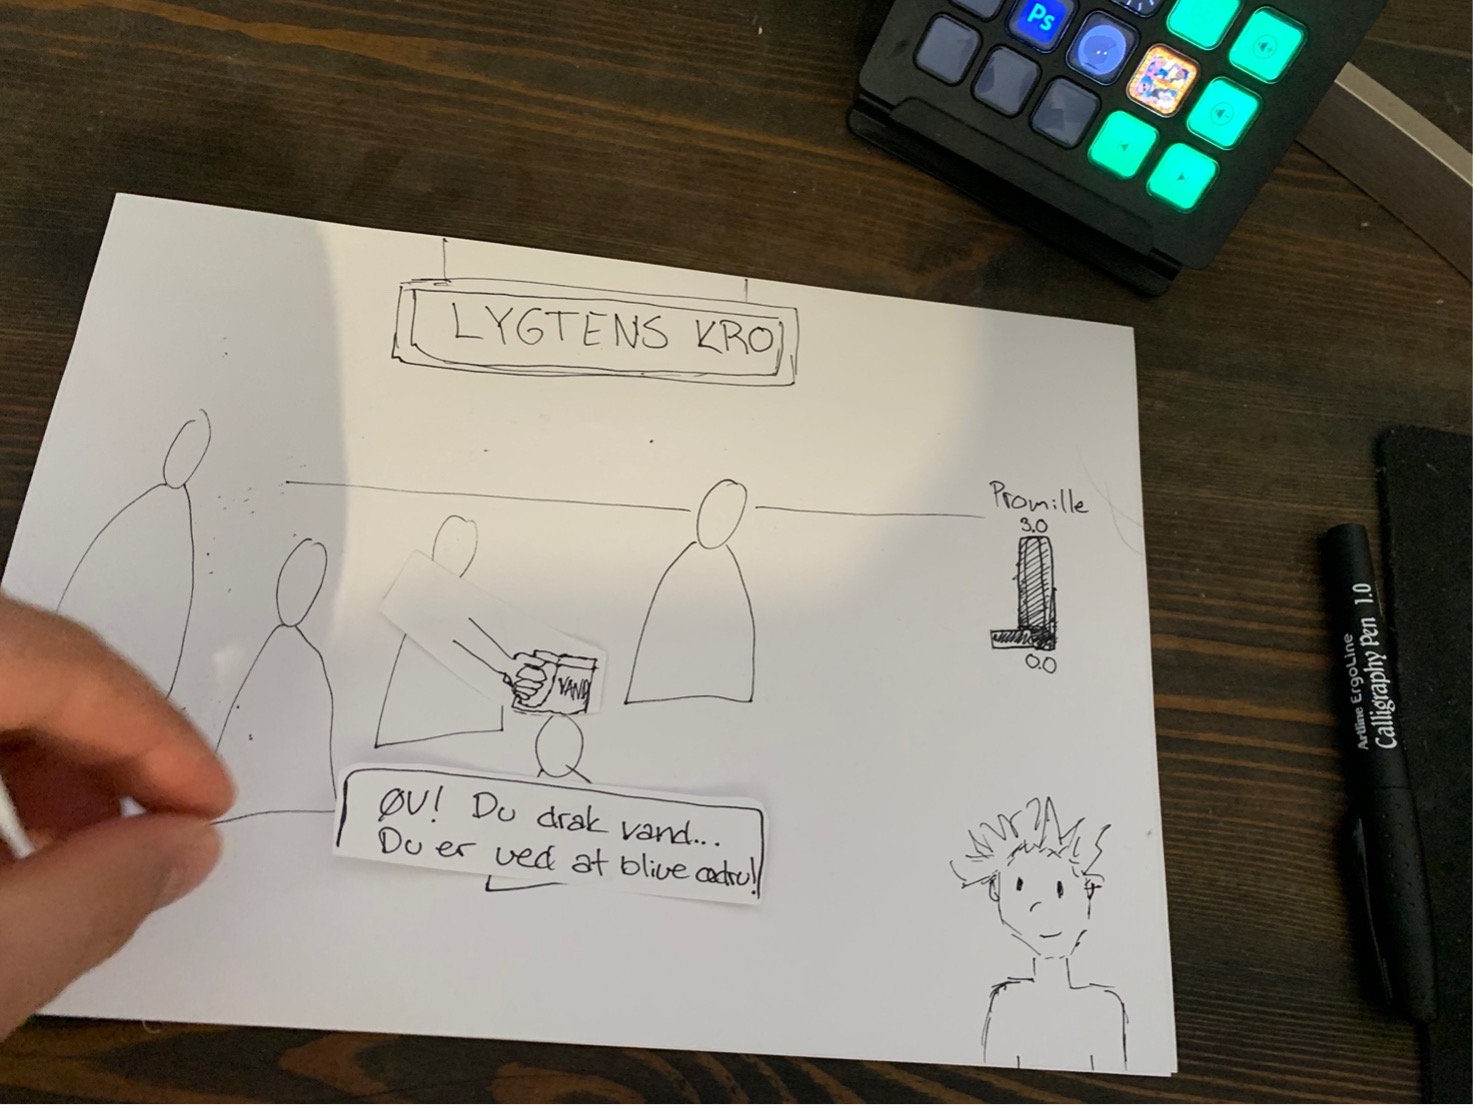 Ps
LYGTENS KRO
Promille
3.0
0.0
VAND
ØV! Du drak vand...
Du er ved at blive ædru!
Artline ErgoLine
Calligraphy Pen 1.0